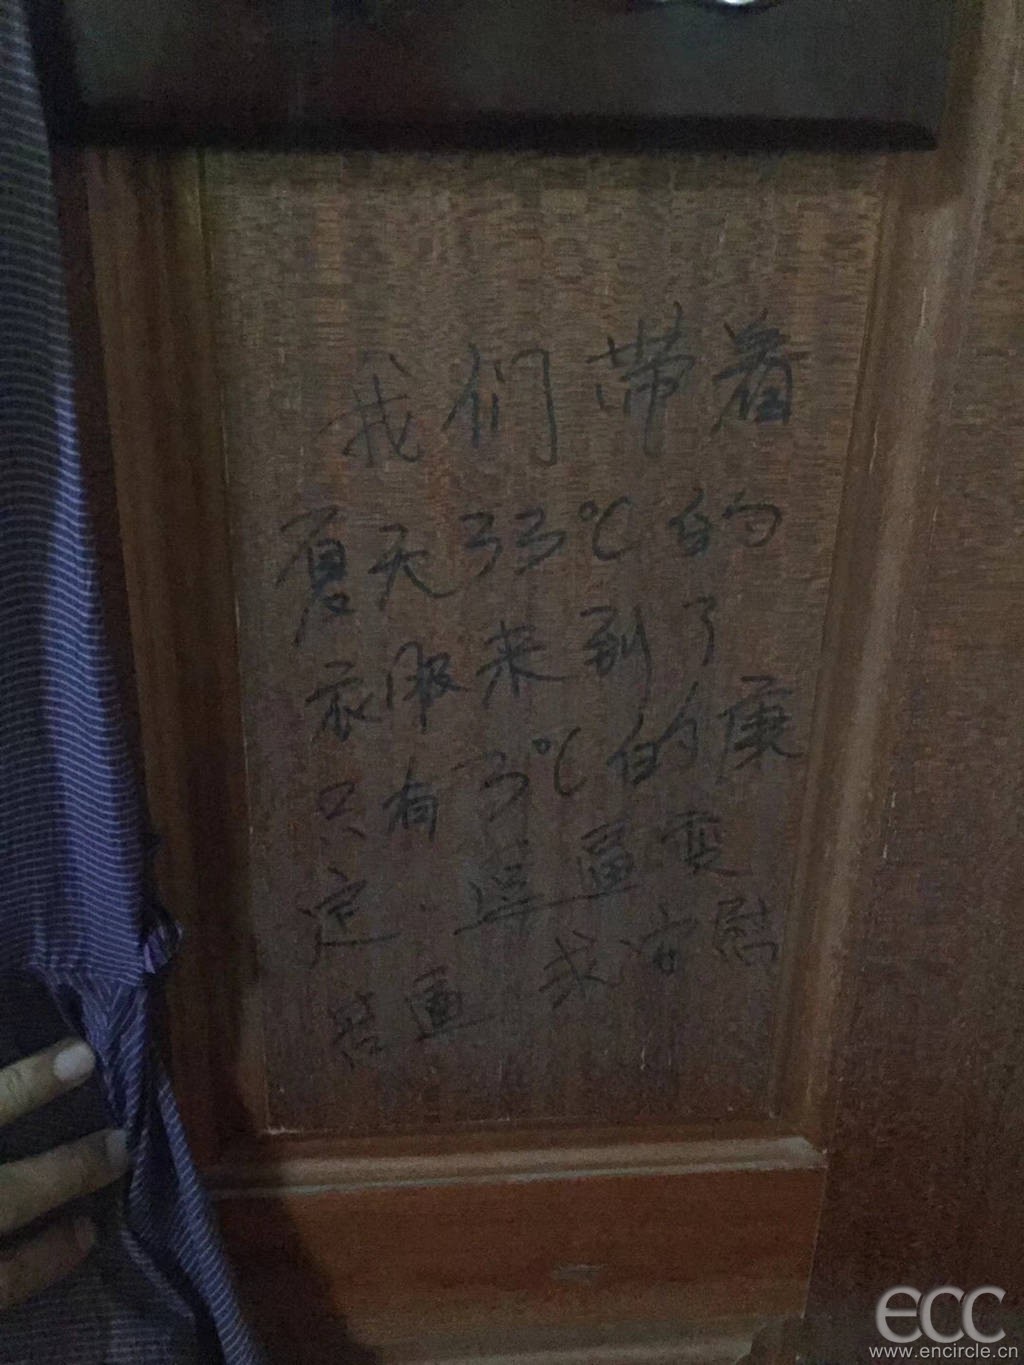 我们带着
夏天33℃的
衣服来到了
只有3℃的康
定 逗逼变
苦逼 求安慰
ecc
www.encircle.cn